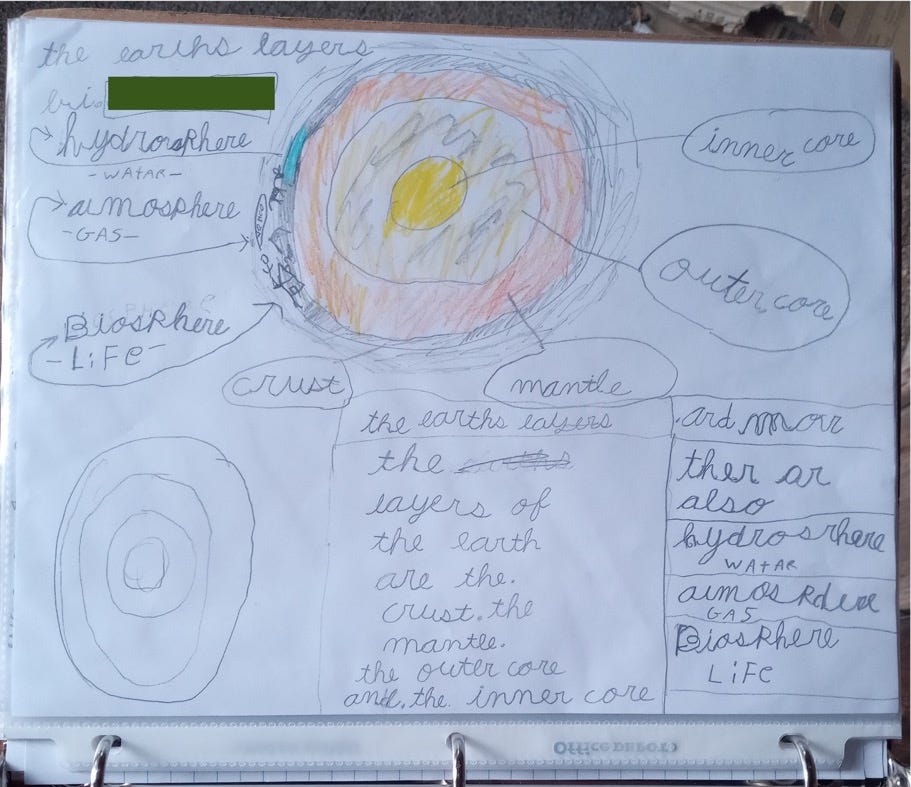 the earths layers
bi.
hydrorsphere
-WAtAR-
aimosphere
-GAS-
Biosphere
-LiFe-
inner core
outer core
crust
mantle
the earths layers
the earths
layers of
the earth
are the.
crust. the
mantle.
the outer core
and. the inner core
ther ar
also
hydrosrhere
WAtAR
GAS
Biosphere
LiFe
Office Depot